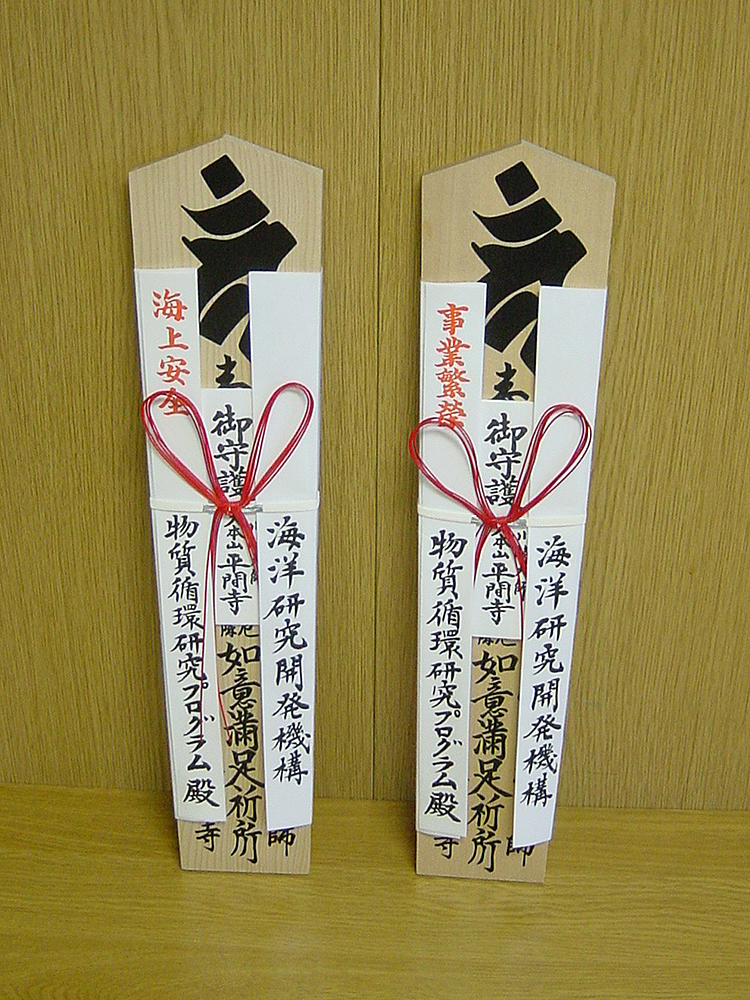 海上安全
物質循環研究プログラム殿
御守護
大本山平間寺
海洋研究開発機構
如意満足祈所
寺
師
事業繁榮
物質循環研究プログラム殿
御守護
本山平間寺
海洋研究開発機構
如意満足祈所
寺
師